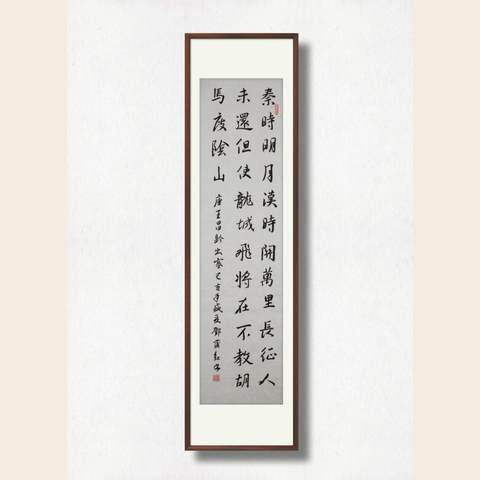 秦時明月漢時關萬里長征人
未還但使龍城飛將在不教胡
馬度陰山 唐王昌齡出塞己亥年盛夏鄧